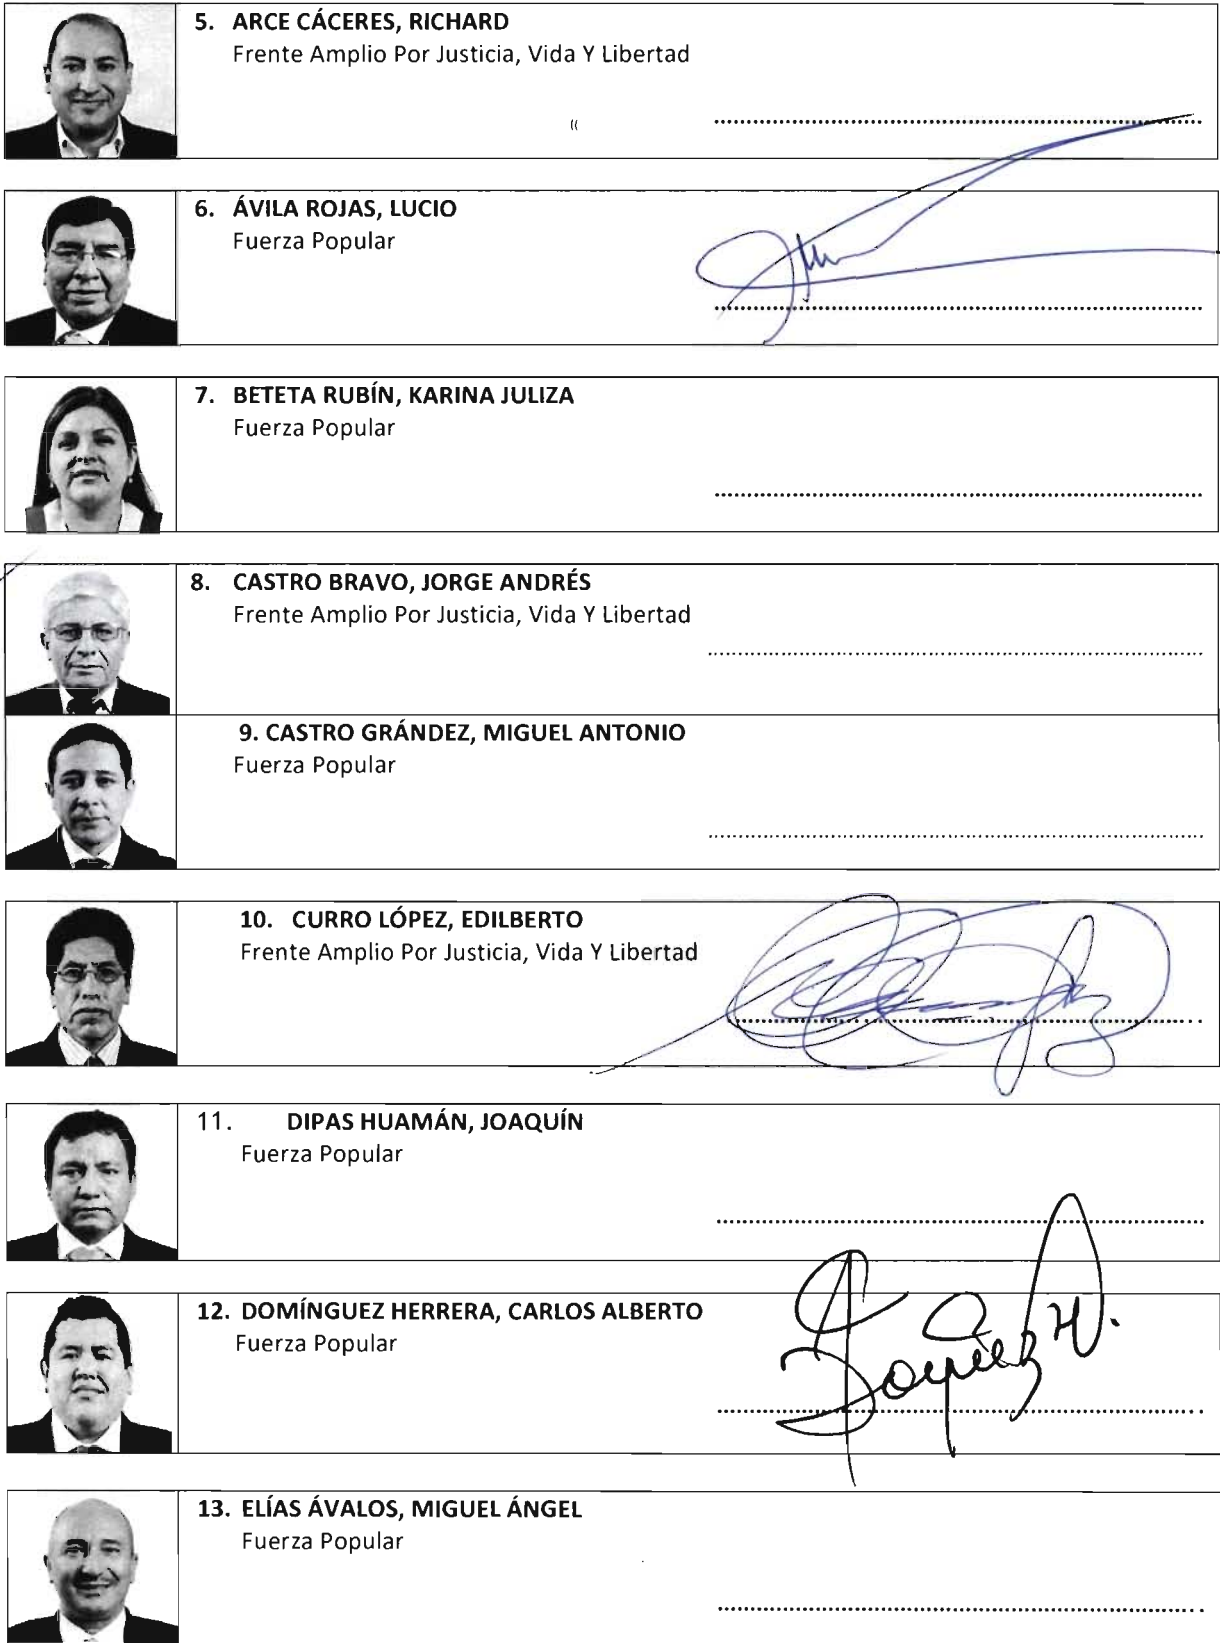 5. ARCE CÁCERES, RICHARD
Frente Amplio Por Justicia, Vida Y Libertad
6. ÁVILA ROJAS, LUCIO
Fuerza Popular
7. BETETA RUBÍN, KARINA JULIZA
Fuerza Popular
8. CASTRO BRAVO, JORGE ANDRÉS
Frente Amplio Por Justicia, Vida Y Libertad
9. CASTRO GRÁNDEZ, MIGUEL ANTONIO
Fuerza Popular
10. CURRO LÓPEZ, EDILBERTO
Frente Amplio Por Justicia, Vida Y Libertad
11. DIPAS HUAMÁN, JOAQUÍN
Fuerza Popular
12. DOMÍNGUEZ HERRERA, CARLOS ALBERTO
Fuerza Popular
13. ELÍAS ÁVALOS, MIGUEL ÁNGEL
Fuerza Popular